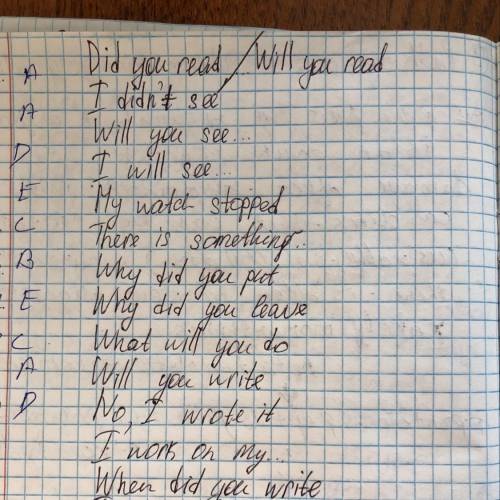 Did you read / ... Will you read
A
I didn't see
A
Will you see...
D
I will see...
E
My watch stopped
C
There is something...
B
Why did you put
E
Why did you leave
C
What will you do
A
Will you write
D
No, I wrote it
I work on my...
When did you write